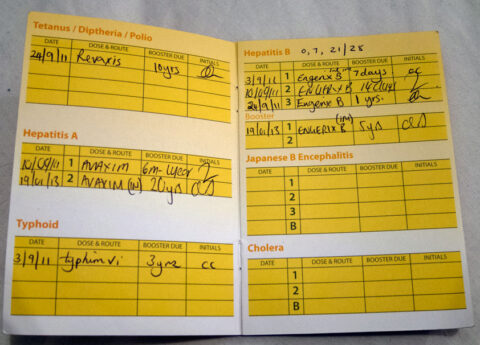 Tetanus / Diptheria / Polio
DATE DOSE & ROUTE BOOSTER DUE INITIALS
24/9/11 Revaxis 10yrs
Hepatitis A
DATE DOSE & ROUTE BOOSTER DUE INITIALS
10/09/11 1 AVAXIM 6m-1year
19/01/13 2 AVAXIM (IM) 20yrs
Typhoid
DATE DOSE & ROUTE BOOSTER DUE INITIALS
3/9/11 typhim vi 3yrs cc
Hepatitis B 0, 7, 21/28
DATE DOSE & ROUTE BOOSTER DUE INITIALS
3/9/11 1 Engerix B 7days cc
10/09/11 2 ENGERIX B
24/9/11 3 Engerix B 1 yrs.
Booster
19/01/13 1 ENGERIX B (IM) 5yrs
2
Japanese B Encephalitis
DATE DOSE & ROUTE BOOSTER DUE INITIALS
1
2
3
B
Cholera
DATE DOSE & ROUTE BOOSTER DUE INITIALS
1
2
B